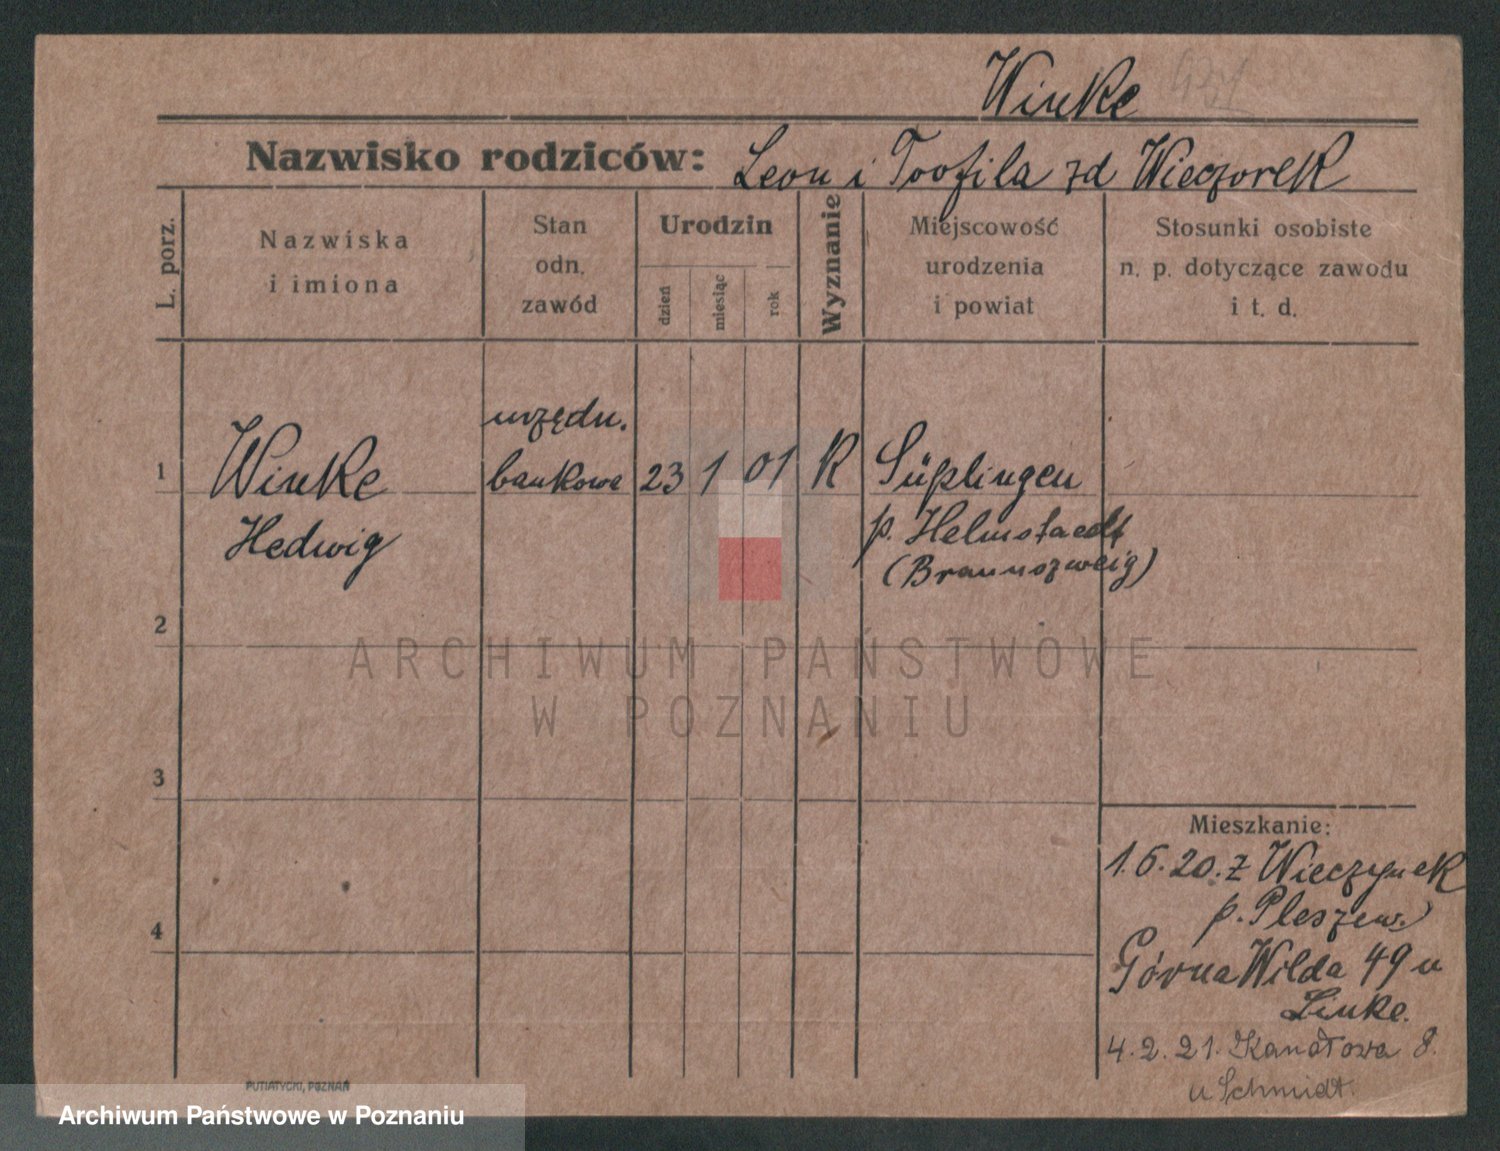 Winke
Nazwisko rodziców: Leon i Teofila zd Wieczorek
L. porz.
Nazwiska
i imiona
Stan
odn.
zawód
Urodzin
dzień
miesiąc
rok
Wyznanie
Miejscowość
urodzenia
i powiat
Stosunki osobiste
n. p. dotyczące zawodu
i t. d.
urzędn.
1 Winke bankowa 23 1 01 R Süplingen
Hedwig p. Helmstaedt
(Braunszweig)
2
3
4
Mieszkanie:
1.6.20. z Wieczynek
p. Pleszew)
Górna Wilda 49 u
Linke.
4.2.21. Kanałowa 8.
u Schmidt.
PUTIATYCKI, POZNAŃ
ARCHIWUM PAŃSTWOWE
W POZNANIU
Archiwum Państwowe w Poznaniu